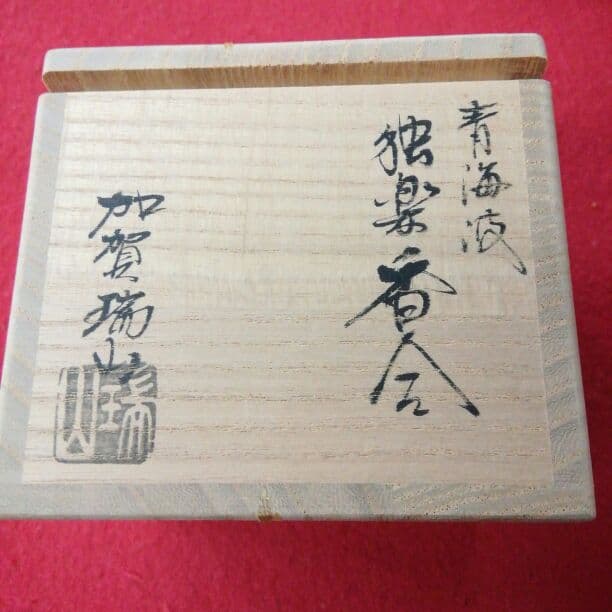 青海波
独楽香合
加賀瑞山
瑞山